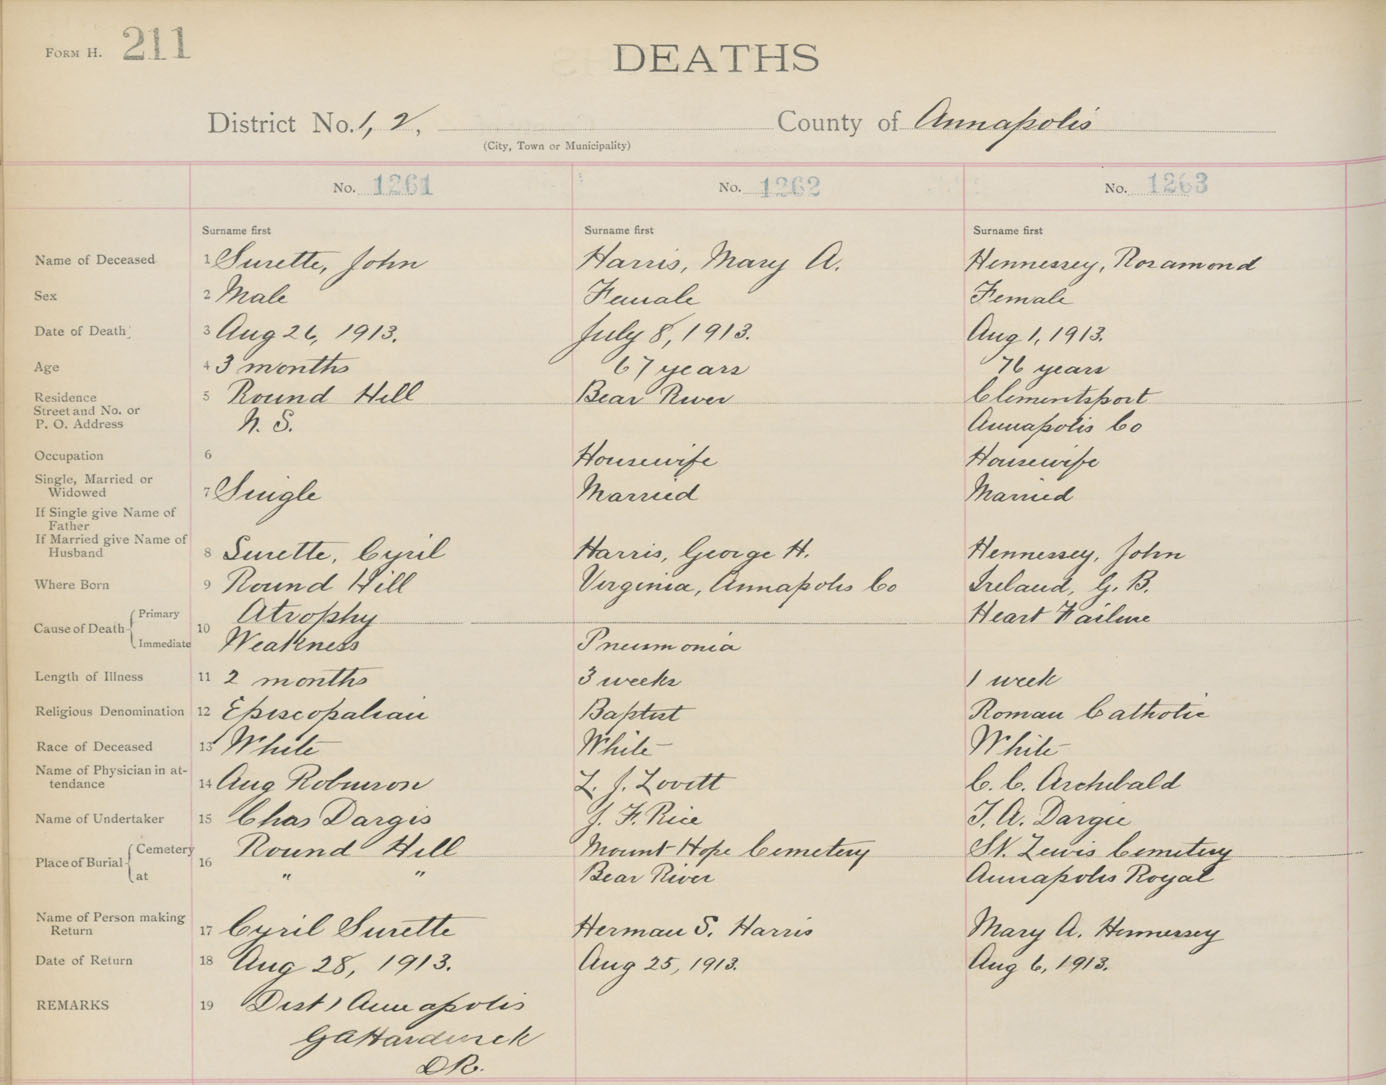 FORM H. 211
DEATHS
District No. 1, 2, County of Annapolis
(City, Town or Municipality)
No. 1261 No. 1262 No. 1263
Surname first Surname first Surname first
Name of Deceased 1 Surette, John Harris, Mary A. Hennessey, Rosamond
Sex 2 Male Female Female
Date of Death 3 Aug 26, 1913. July 8, 1913. Aug 1, 1913.
Age 4 3 months 67 years 76 years
Residence 5 Round Hill Bear River Clementsport
Street and No. or
P. O. Address N. S. Annapolis Co
Occupation 6 Housewife Housewife
Single, Married or
Widowed 7 Single Married Married
If Single give Name of
Father
If Married give Name of
Husband 8 Surette, Cyril Harris, George H. Hennessey, John
Where Born 9 Round Hill Virginia, Annapolis Co Ireland, G. B.
Primary Atrophy Heart Failure
Cause of Death 10
Immediate Weakness Pneumonia
Length of Illness 11 2 months 3 weeks 1 week
Religious Denomination 12 Episcopalian Baptist Roman Catholic
Race of Deceased 13 White White White
Name of Physician in at-
tendance 14 Aug Robinson L. J. Lovitt C. C. Archibald
Name of Undertaker 15 Chas Dargis J. F. Rice T. A. Dargie
Cemetery Round Hill Mount Hope Cemetery St. Lewis Cemetery
Place of Burial 16
at " " Bear River Annapolis Royal
Name of Person making
Return 17 Cyril Surette Herman S. Harris Mary A. Hennessey
Date of Return 18 Aug 28, 1913. Aug 25, 1913. Aug 6, 1913.
REMARKS 19 Dist 1 Annapolis
G A Hardwick
D R.